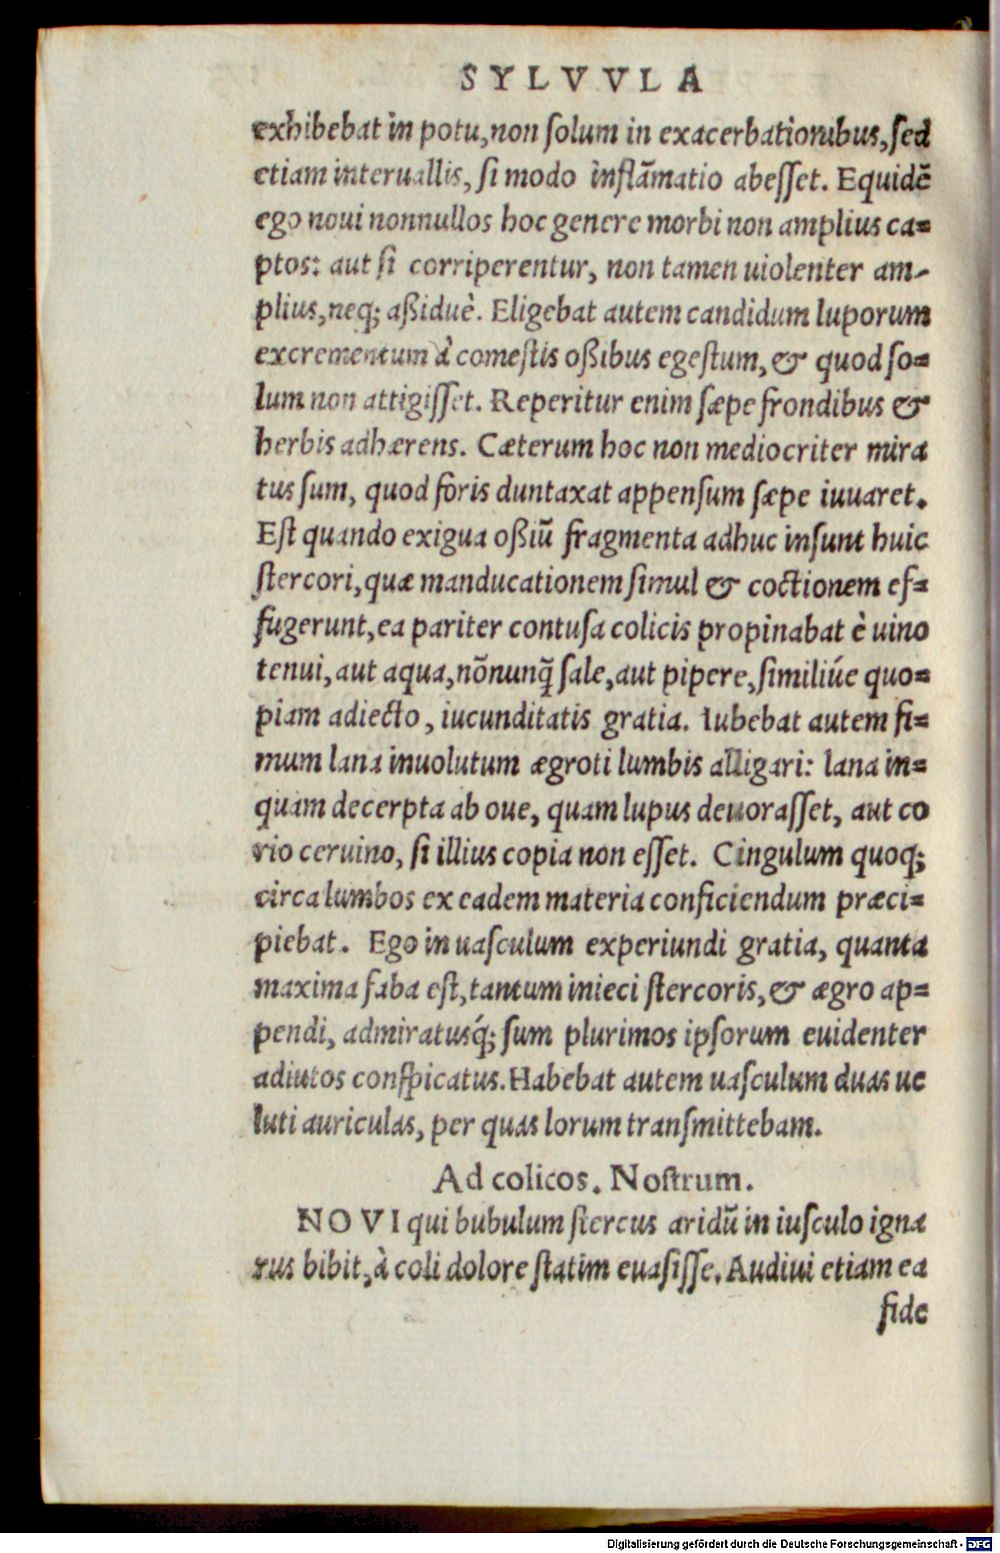 SYLVVLA
exhibebat in potu, non ſolum in exacerbationibus, ſed
etiam interuallis, ſi modo inflãmatio abeſſet. Equidẽ
ego noui nonnullos hoc genere morbi non amplius ca=
ptos: aut ſi corriperentur, non tamen uiolenter am-
plius, neq; aßiduè. Eligebat autem candidum luporum
excrementum à comeſtis oßibus egeſtum, & quod ſo=
lum non attigiſſet. Reperitur enim ſæpe frondibus &
herbis adhærens. Cæterum hoc non mediocriter mira
tus ſum, quod foris duntaxat appenſum ſæpe iuuaret.
Eſt quando exigua oßiũ fragmenta adhuc inſunt huic
ſtercori, quæ manducationem ſimul & coctionem ef=
fugerunt, ea pariter contuſa colicis propinabat è uino
tenui, aut aqua, nõnunq̃ ſale, aut pipere, ſimiliúe quo=
piam adiecto, iucunditatis gratia. Iubebat autem fi=
mum lana inuolutum ægroti lumbis alligari: lana in=
quam decerpta ab oue, quam lupus deuoraſſet, aut co
rio ceruino, ſi illius copia non eſſet. Cingulum quoq;
circa lumbos ex eadem materia conficiendum præci=
piebat. Ego in uaſculum experiundi gratia, quanta
maxima faba eſt, tantum inieci ſtercoris, & ægro ap=
pendi, admiratusq́; ſum plurimos ipſorum euidenter
adiutos conſpicatus. Habebat autem uaſculum duas ue
luti auriculas, per quas lorum tranſmittebam.
Ad colicos. Noſtrum.
NOVI qui bubulum ſtercus aridũ in iuſculo igna
rus bibit, à coli dolore ſtatim euaſiſſe. Audiui etiam ea
fide
Digitalisierung gefördert durch die Deutsche Forschungsgemeinschaft - DFG